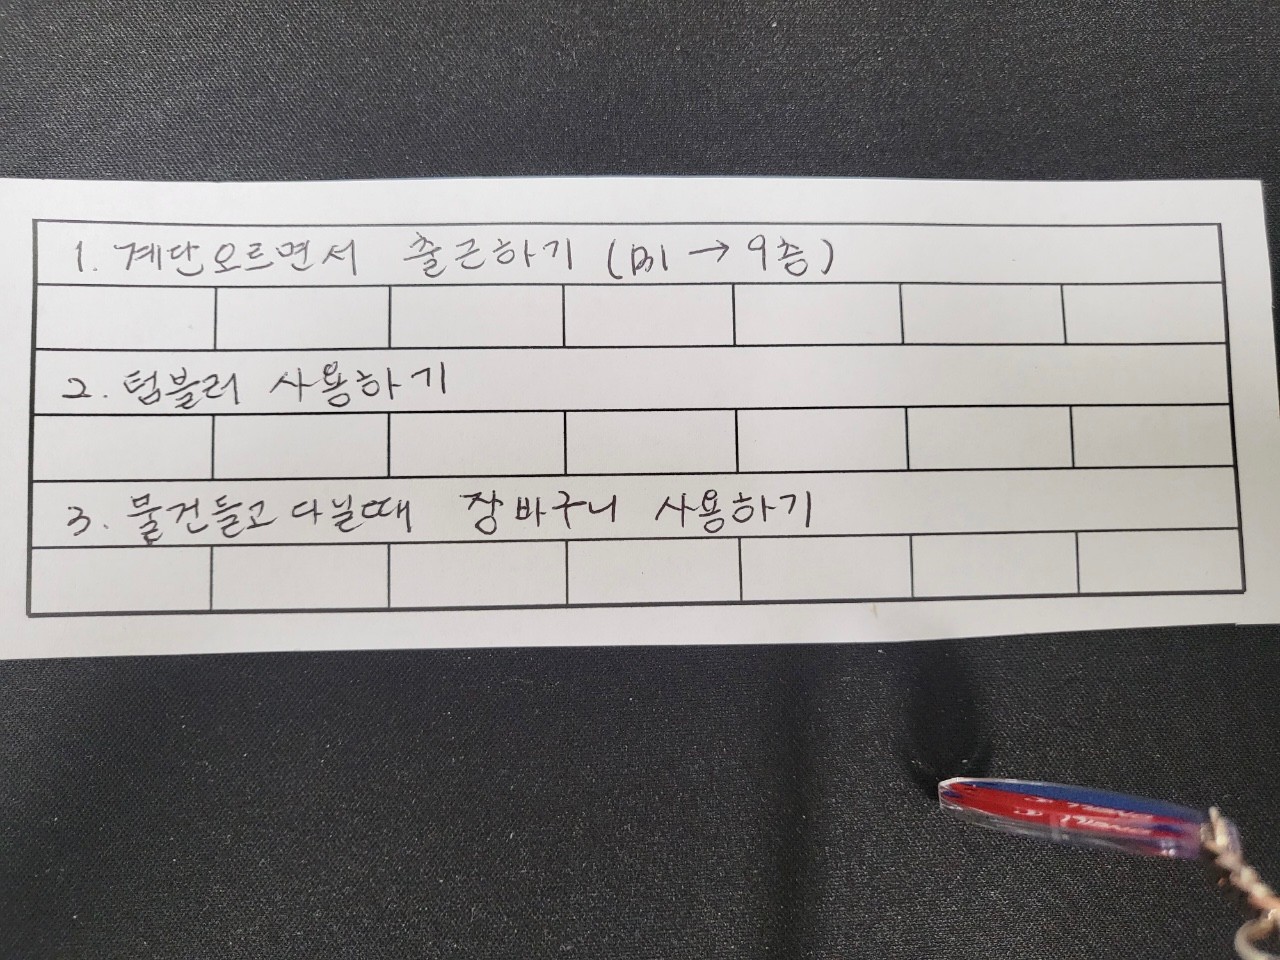 1. 계단오르면서 출근하기 (B1 → 9층)
2. 텀블러 사용하기
3. 물건들고 다닐때 장바구니 사용하기